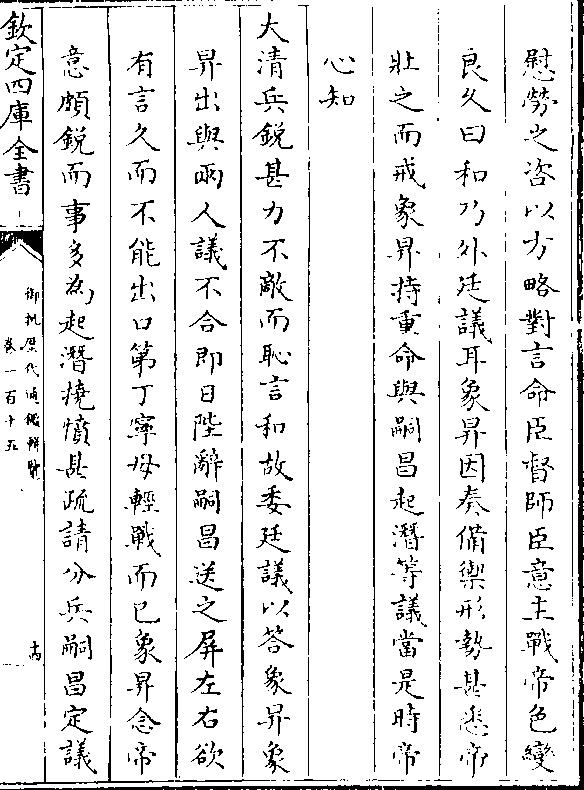 慰勞之咨以方略對言命臣督師臣意主戰帝色變
良久曰和乃外廷議耳象昇因奏備禦形勢甚悉帝
壯之而戒象昇持重命與嗣昌起潛等議當是時帝
心知
大清兵銳甚力不敵而恥言和故委廷議以答象昇象
昇出與兩人議不合即日陛辭嗣昌送之屏左右欲
有言久而不能出口第丁寧毋輕戰而已象昇念帝
意頗銳而事多為起潛撓憤甚疏請分兵嗣昌定議
欽定四庫全書
御批歷代通鑑輯覽
卷一百十五